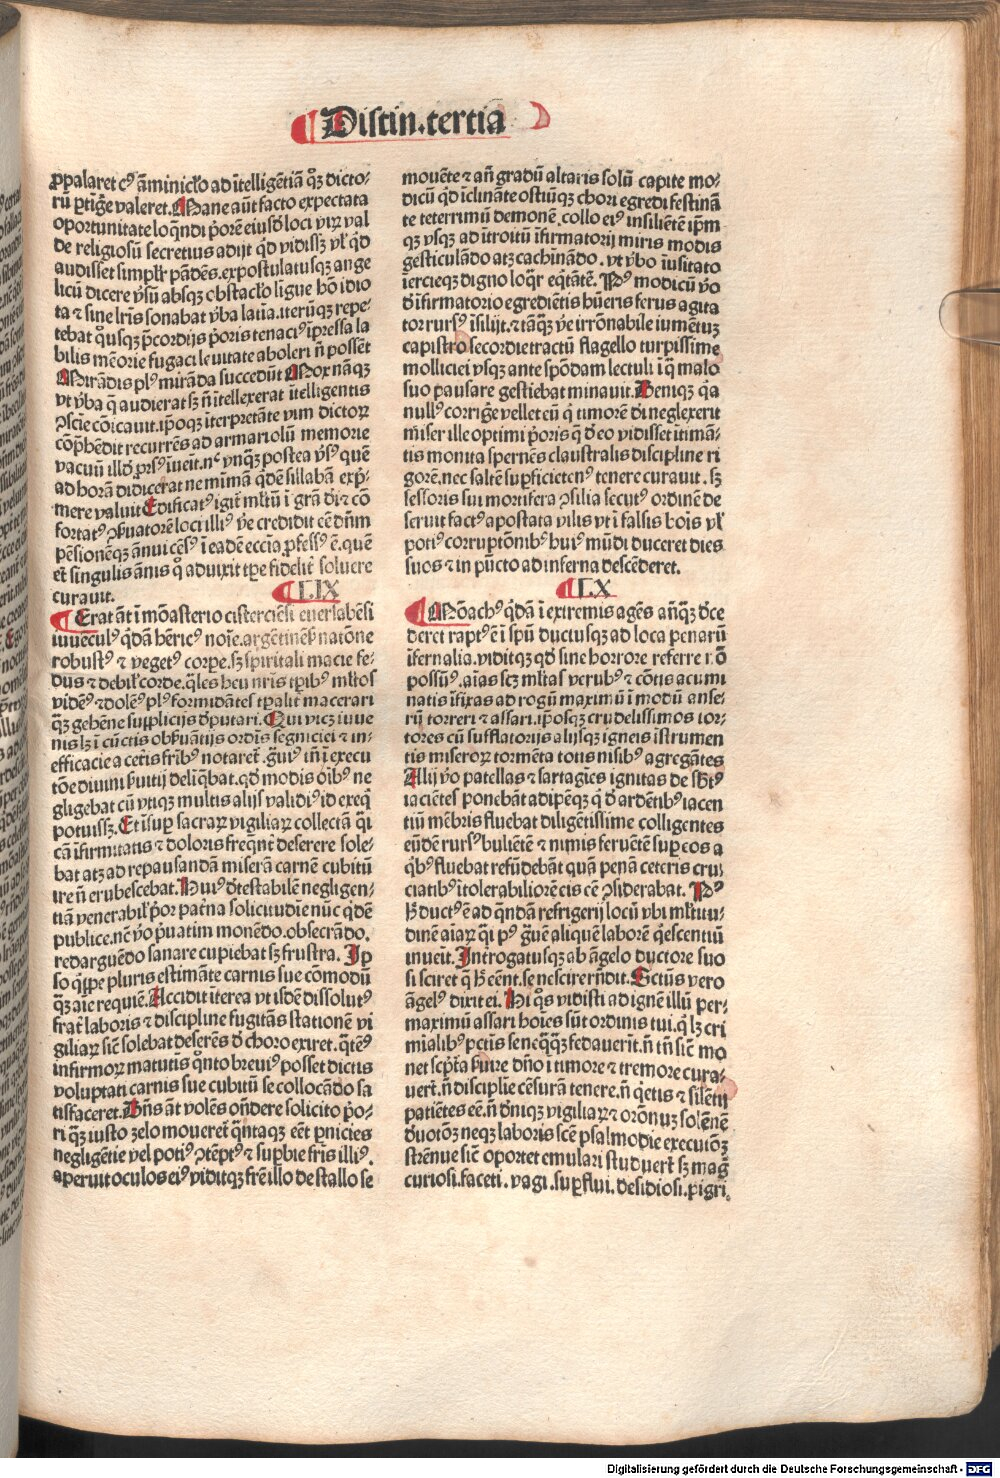 Distin.tertia
ꝓpalaret cꝰ ãminicl̃o ad ĩtelligẽtiã qͥꝫ dicto-
rũ ꝑtĩgẽ valeret. Mane aũt facto expectata
oportunitate loqñdi p̃orẽ eiusd̃ loci virꝝ val
de religiosũ secretius adijt qd̃ vidissꝫ vl̓ qd̃
audisset simpl̓r pãdẽs. expostulatusqꝫ ange
licũ dicere ṽsũ absqꝫ obstacl̃o ligue hõ idio
ta ⁊ sine l̃ris sonabat v̓ba latia. iterũqꝫ repe-
tebat quͦsqꝫ p̃cordijs p̃oris tenaciꝰ ip̃ressa la
bilis mẽorie fugaci leuitate aboleri ñ possẽt
Mirãdis plꝰ mirãda succedũt Mox nãqꝫ
vt v̓ba q̃ audierat sꝫ ñ ĩtellexerat ĩtelligentis
ꝯscĩe cõicauit. ip̃oqꝫ ĩterpretãte vim dictoꝝ
cõp̃hẽdit recurrẽs ad armariolũ memorie
vacuũ illd̓ ꝓrsꝰ ĩueĩt. nͨ vnq̃ꝫ postea ṽsꝰ quẽ
ad horã didicerat ne mimã qͥdẽ sillabã exp̃-
mere valuit Edificatꝰ igit̃ ml̃tũ ĩ gr̃a dĩ ⁊ cõ
fortatꝰ ꝯseruatorẽ loci illiꝰ ṽe credidit eẽ dñm
pẽsionẽqꝫ ãnui cẽsꝰ ĩ eadẽ ecc̃ia ꝓfessꝰ ẽ. quẽ
et̃ singulis ãnis qͦ aduixit tp̃e fidelit̃ soluere
curauit.
LIX
Erat ãt ĩ mõasterio cistercieñ. euerlabẽsi
iuuẽculꝰ qͥdã hẽricꝰ noĩe. argẽtinẽsꝭ natõne
robustꝰ ⁊ vegetꝰ corꝑe. sꝫ spiritali macie fe-
dus ⁊ debil̓ corde. q̃les heu nr̃is tꝑibꝰ ml̃tos
vidẽꝰ ⁊ dolẽꝰ plꝰ formidãtes tꝑalit̃ macerari
qͣꝫ gehẽne supplicijs dͤputari. Qui vicꝫ iuue
nis lꝫ ĩ cũctis obs̓uãtijs ordĩs segniciei ⁊ in-
efficacie a cet̃is fr̃ibꝰ notaret̃. gͣuiꝰ tñ ĩ execu
tõe diuini s̓uitij deliq̃bat. qd̓ modis oĩbꝰ ne
gligebat cũ vtiqꝫ multis alijs validiꝰ id exeq̃
potuissꝫ. Et ĩsuꝑ sacraꝝ vigiliaꝝ collectã q̃i
cã ĩfirmitatis ⁊ doloris freqñt̃ deserere sole-
bat atꝫ ad repausandã miserã carnẽ cubitũ
ire ñ erubescebat. Huiꝰ dͤtestabilẽ negligen-
tiã venerabil̓ p̃or pat̃na solicitudĩe nũc qͥdẽ
publice. nẽ ṽo p̃uatim monẽdo. obsecrãdo.
redarguẽdo sanare cupiebat sꝫ frustra. Ip
so qͥppe pluris estimãte carnis sue cõmodũ
qͣꝫ aĩe requiẽ. Accidit ĩterea vt isdẽ dissolutꝰ
frat̃ laboris ⁊ discipline fugitãs stationẽ vi
giliaꝝ sic̃ solebat deserẽs dͤ choro exiret. qͣtẽꝰ
infirmoꝝ matutis qͣnto breuiꝰ posset dictis
voluptati carnis sue cubitũ se collocãdo sa
tisfaceret. Dñs ãt volẽs oñdere solicito p̃o-
ri qͣꝫ iusto zelo moueret̃ qͣntaqꝫ eẽt ꝑnicies
negligẽtie vel potiꝰ ꝯtẽptꝰ ⁊ suꝑbie fr̃is illiꝰ.
aperuit oculos eiꝰ viditqꝫ fr̃em illo de stallo se
mouẽte ⁊ añ gradũ altaris solũ capite mo-
dicũ qͥd ĩclinãte ostiũqꝫ chori egredi festinã
te teterrimũ demonẽ. collo eiꝰ insiliẽtẽ ip̃m
qꝫ vsqꝫ ad ĩtroitũ ĩfirmatorij miris modis
gesticulãdo atꝫ cachĩnãdo. vt v̓bo ĩusitato
ierciesqꝫ digno loqͣr eq̃tãtẽ. Pꝰ modicũ ṽo
dͤ ĩfirmatorio egrediẽtis hũeris ferus agita
tor rursꝰ ĩsilijt. ⁊ tãqͣꝫ ṽe irrõnabile iumẽtuꝫ
capistro secordie tractũ flagello turpissime
molliciei vsqꝫ ante spõdam lectuli ĩ q̃ malo
suo pausare gestiebat minauit. Deniqꝫ qͥa
nullꝰ corrigẽ vellet eũ q̃ timorẽ dĩ neglexerit
miser ille optimi p̃oris q̃ dͤ eo vidisset ĩtimã-
tis monita spernẽs claustralis discipline ri
gorẽ. nec saltẽ suꝑficietenꝰ tenere curauit. sꝫ
sessoris sui mortifera ꝯsilia secutꝰ ordinẽ de
seruit factꝰ apostata vilis vt ĩ falsis bõis vl̓
potiꝰ corruptõnibꝰ huiꝰ mũdi duceret dies
suos ⁊ in pũcto ad inferna descẽderet.
LX
Mõachꝰ qͥdã ĩ extremis agẽs añq̃ꝫ dͤce
deret raptꝰ ẽ ĩ sp̃u ductusqꝫ ad loca penarũ
ĩfernalia. viditqꝫ qd̓ sine horrore referre nõ
possũꝰ. aĩas scꝫ ml̃tas verubꝰ ⁊ cõtis acumi
natis ĩfixas ad rogũ maximũ ĩ modũ anse-
rũ torreri ⁊ assari. ip̃osqꝫ crudelissimos tor-
tores cũ sufflatorijs alijsqꝫ igneis ĩstrumen
tis miseroꝝ tormẽta totis nisibꝰ agregãtes
Alij ṽo patellas ⁊ sartagĩes ignitas de sb̃tꝰ
iaciẽtes ponebãt adipẽqꝫ q̃ dͤ ardẽtibꝰ iacen
tiũ mẽbris fluebat diligẽtissime colligentes
eũdẽ rursꝰ buliẽtẽ ⁊ nimis feruẽtẽ suꝑ eos a
qͥbꝰ fluebat refũdebãt quã penã ceteris cru
ciatibꝰ ĩtolerabiliorẽ eis eẽ ꝯsiderabat. Pꝰ
h̓ ductꝰ ẽ ad qͣndã refrigerij locũ vbi ml̃titu-
dinẽ aĩaꝝ q̃i pꝰ gͣuẽ aliquẽ laborẽ qͥescentiũ
inueit. Introgatusqꝫ ab ãgelo ductore suo
si sciret q̃ h̓ eẽnt. se nescire rñdit. Sctũs vero
ãgelꝰ dixit ei. Hi qͦs vidisti ad ignẽ illũ per-
maximũ assari hoĩes sũt ordinis tui. q̃ lꝫ cri
mĩalibꝰ pctĩs se neqͣqͣꝫ fedauerĩt. ñ tñ sic̃ mo
net sc̓pt̃a s̓uire dño ĩ timore ⁊ tremore cura-
uert̃. ñ disciplĩe cẽsurã tenere. ñ qͥetis ⁊ silẽtij
patiẽtes eẽ. ñ dͤniqꝫ vigiliaꝝ ⁊ orõnuꝫ solẽnẽ
dͤuotõꝫ neqꝫ laboris sc̃e psalmodie execuiõꝫ
strẽnue sic̃ oportet emulari studuert̃ sꝫ mag̃
curiosi. faceti. vagi. suꝑflui. desidiosi. pigri.
Digitalisierung gefördert durch die Deutsche Forschungsgemeinschaft - DFG